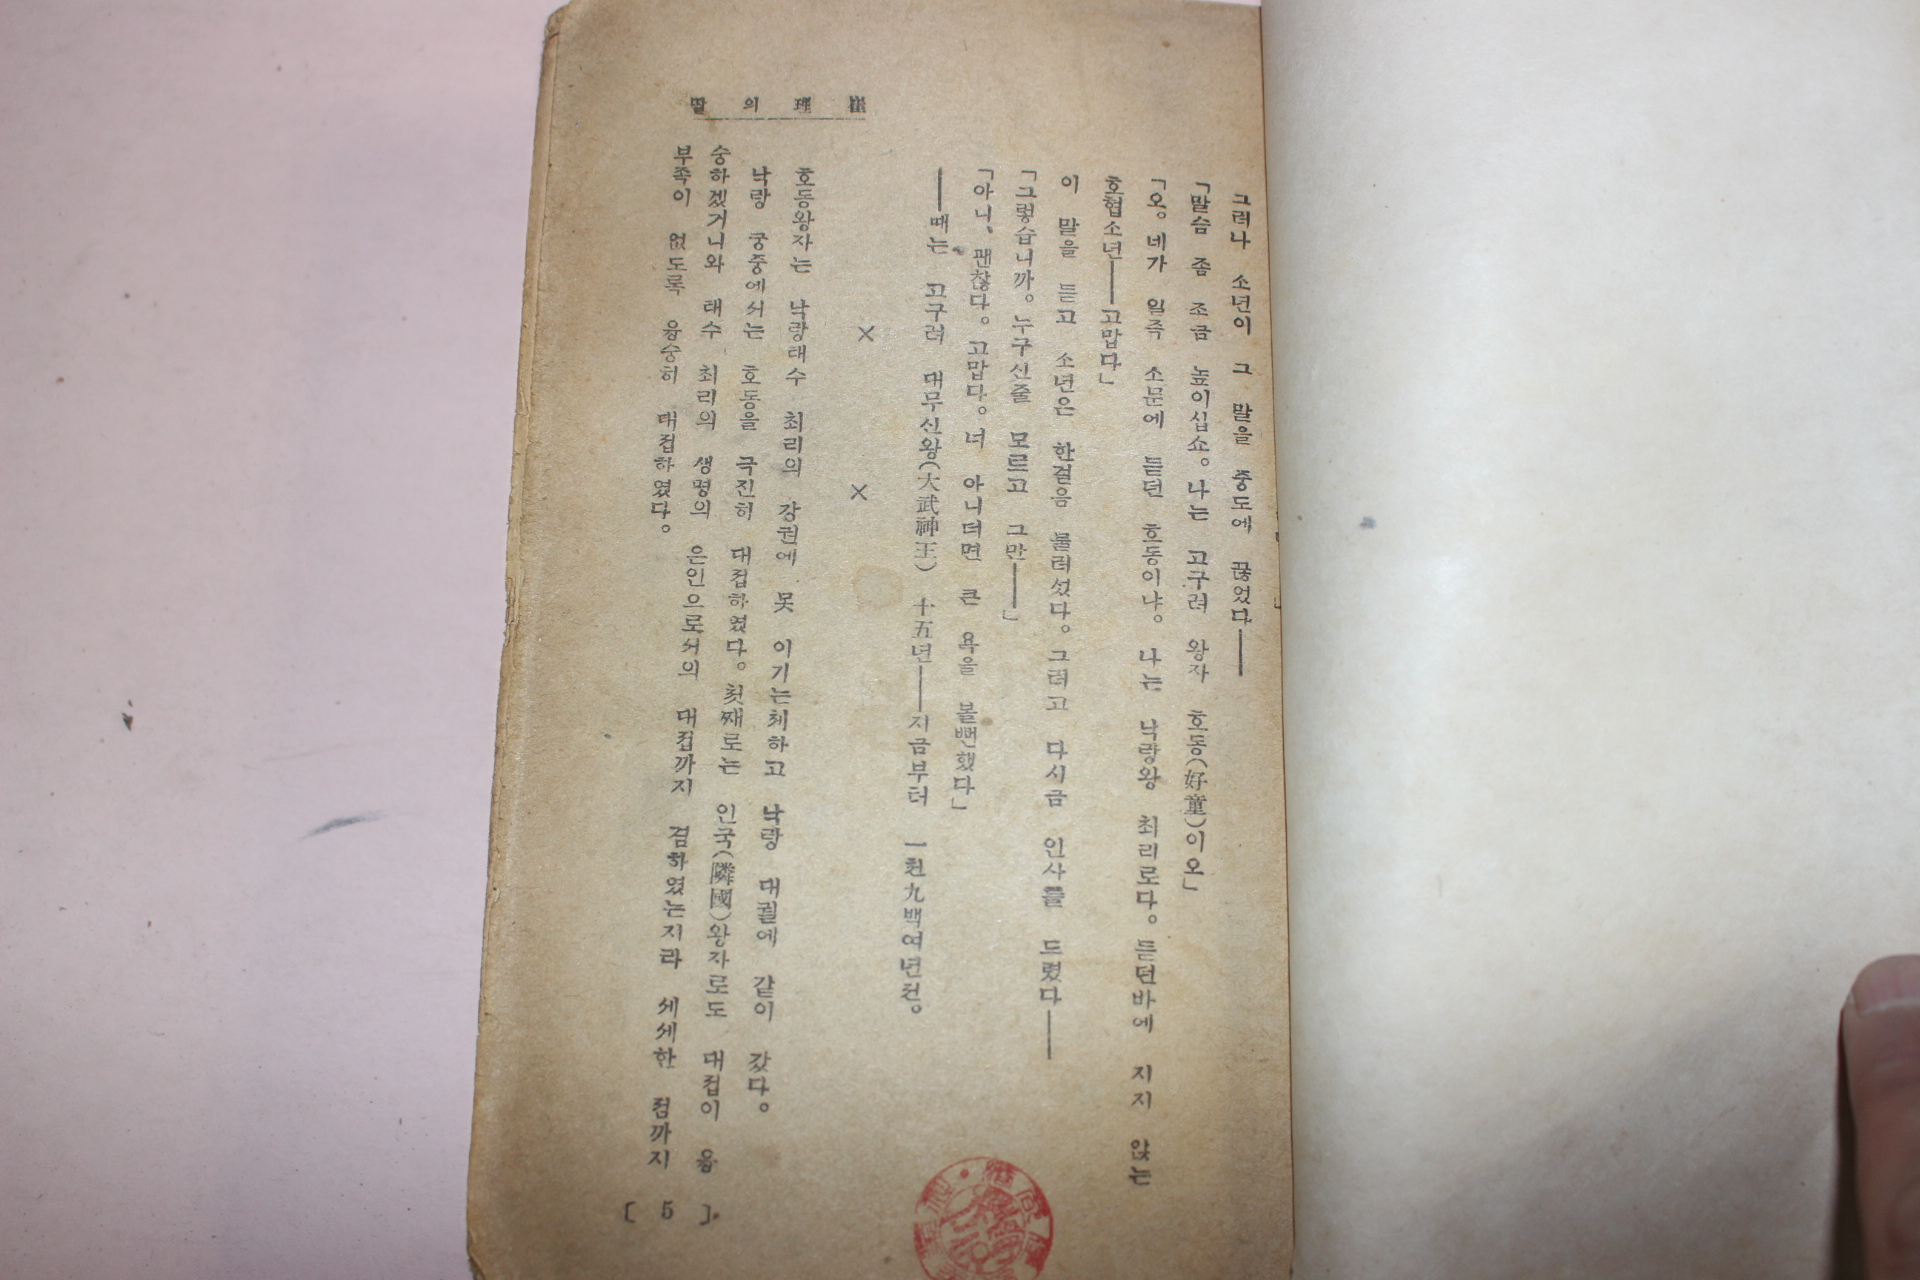 崔理의딸
그러나 소년이 그 말을 중도에 끊었다──
「말슴 좀 조금 높이십쇼。나는 고구려 왕자 호동(好童)이오」
「오。네가 일즉 소문에 듣던 호동이냐。나는 낙랑왕 최리로다。듣던바에 지지 않는
호협소년──고맙다」
이 말을 듣고 소년은 한걸음 물러섰다。그리고 다시금 인사를 드렸다──
「그렇습니까。누구신줄 모르고 그만──」
「아니、괜찮다。고맙다。너 아니더면 큰 욕을 볼뻔했다」
──때는 고구려 대무신왕(大武神王) 十五년──지금부터 一천九백여년전。
× ×
호동왕자는 낙랑태수 최리의 강권에 못 이기는체하고 낙랑 대궐에 같이 갔다。
낙랑 궁중에서는 호동을 극진히 대접하였다。첫째로는 인국(隣國)왕자로도 대접이 융
숭하겠거니와 태수 최리의 생명의 은인으로서의 대접까지 겸하였는지라 세세한 점까지
부족이 없도록 융숭히 대접하였다。
[ 5 ]